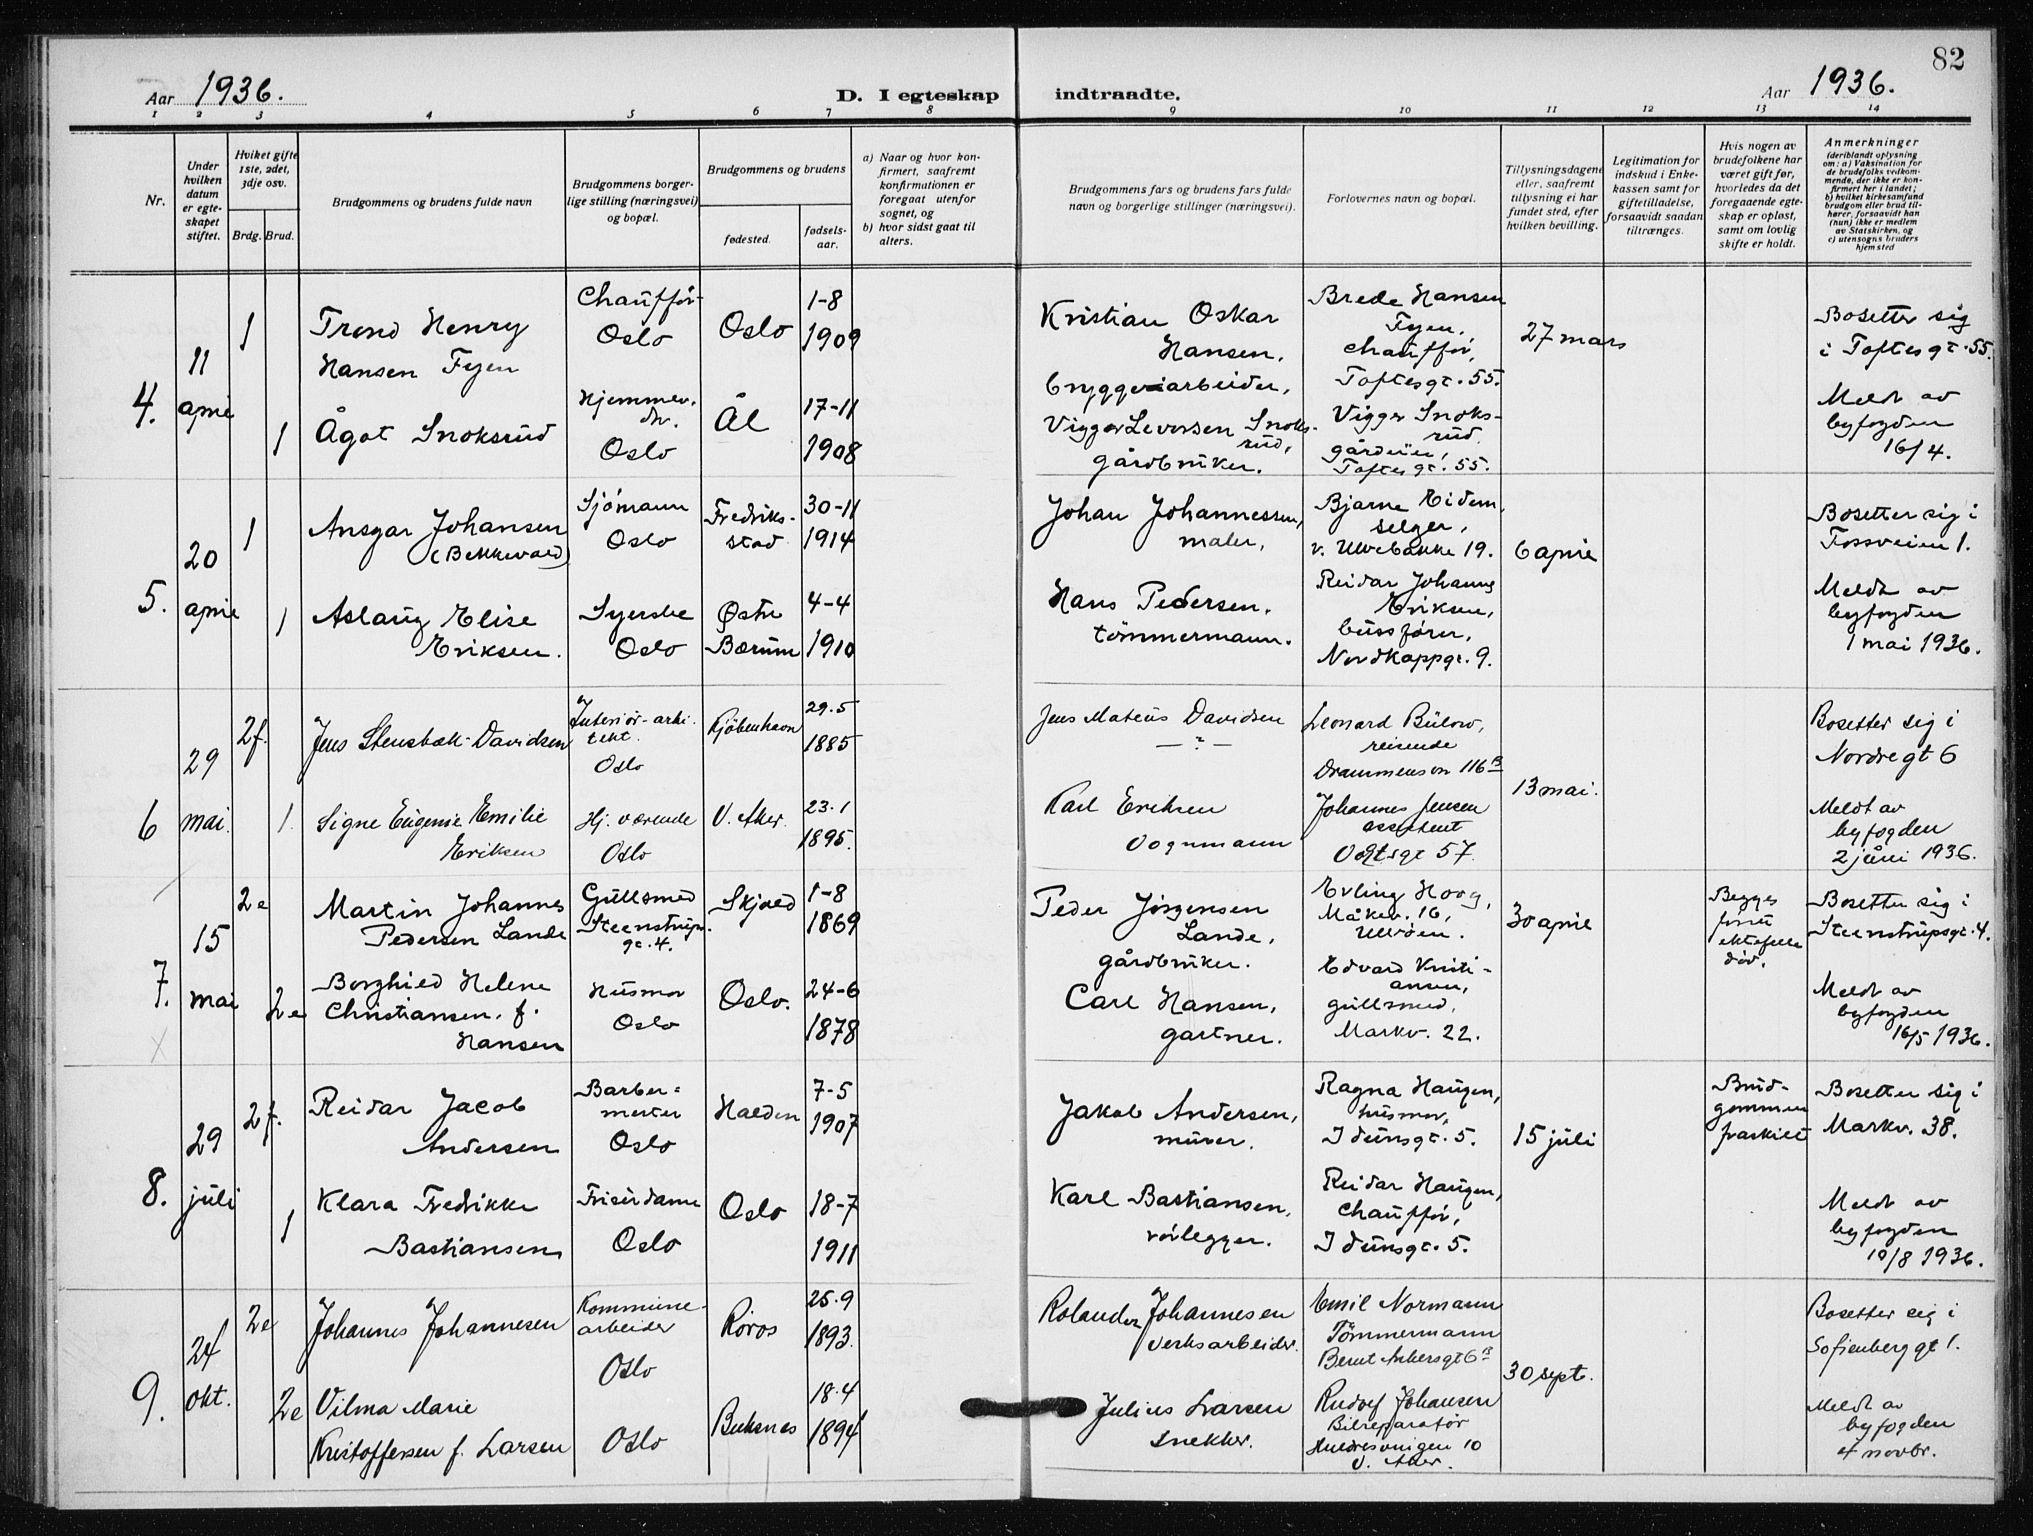 82
Aar 1936.
D. I egteskap
indtraadte.
Aar 1936.
1 2 3 4 5 6 7 8 9 10 11 12 13 14
Nr.
Under hvilken datum er egteskapet stiftet.
Hviket gifte 1ste, 2det, 3dje osv.
Brdg. Brud.
Brudgommens og brudens fulde navn
Brudgommens borgerlige stilling (næringsvei) og bopæl.
Brudgommens og brudens
fødested.
fødselsaar.
a) Naar og hvor konfirmert, saafremt konfirmationen er foregaat utenfor sognet, og
b) hvor sidst gaat til alters.
Brudgommens fars og brudens fars fulde navn og borgerlige stillinger (næringsvei).
Forlovernes navn og bopæl.
Tillysningsdagene eller, saafremt tillysning ei har fundet sted, efter hvilken bevilling.
Legitimation for indskud i Enkekassen samt for giftetilladelse, forsaavidt saadan tiltrænges.
Hvis nogen av brudefolkene har været gift før, hvorledes da det foregaaende egteskap er opløst, samt om lovlig skifte er holdt.
Anmerkninger
(deriblandt oplysning om: a) Vaksination for de brudefolks vedkommende, der ikke er konfirmert her i landet; b) hvilket kirkesamfund brudgom eller brud tilhører, forsaavidt han (hun) ikke er medlem av Statskirken, og c) utensogns bruders hjemsted
4.
11
april
1
Trond Henry
Hansen Fyen
Chauffør
Oslo
Oslo
1-8
1909
Kristian Oskar
Hansen,
bryggeriarbeider,
Brede Hansen
Fyen,
chauffør,
Toftesgt. 55.
27 mars
Bosetter sig
i Toftesgt. 55.
1
Ågot Snoksrud
Hjemmev.
dr.
Oslo
Ål
17-11
1908
Viggo Leversen Snoks-
rud,
gårdbruker.
Viggo Snoks-
rud
gårdeier,
Toftesgt. 55.
Meldt av
byfogden
16/4.
5.
20
april
1
Ansgar Johansen
(Bekkevold)
Sjømann
Oslo
Fredrik-
stad
30-11
1914
Johan Johannessen,
maler,
Bjarne Eidem,
selger,
v. Ulvebakke 19.
6 april
Bosetter sig i
Fossveien 1.
1
Aslaug Elise
Eriksen.
Syerske
Oslo
Østre
Bærum
4-4
1910
Hans Pedersen,
tømmermann.
Reidar Johannes
Eriksen,
bussfører,
Nordkappgt. 9.
Meldt av
byfogden
1 mai 1936.
6
29
mai.
2f.
Jens Stensbæk-Davidsen
Interiør-arki-
tekt.
Oslo
Kjøbenhavn
29.5
1885
Jens Mateus Davidsen
— ? —
Leonard Bülow,
reisende
Drammensvn 116B
13 mai.
Bosetter sig i
Nordregt 6
1.
Signe Eugenie Emilie
Eriksen
Hj. værende
Oslo
V. Aker
23.1
1895.
Karl Eriksen
Vognmann
Johannes Jensen
assistent
Vogtsgt 57.
Meldt av
byfogden
2 juni 1936.
7.
15
mai
2e
Martin Johannes
Pedersen Lande
Gullsmed
Steenstrups-
gt. 4.
Skjold
1-8
1869
Peder Jørgensen
Lande,
gårdbruker.
Erling Hoog,
Måkev. 16,
Ulvøen.
30 april
Begges
første
ektefelle
død.
Bosetter sig i
Steenstrupsgt. 4.
2e
Borghild Helene
Christiansen, f.
Hansen
Husmor
Oslo
Oslo.
24-6
1878
Carl Hansen,
gartner.
Edvard Kristi-
ansen,
gullsmed,
Markv. 22.
Meldt av
byfogden
16/5 1936.
8.
29
juli
2f.
Reidar Jacob
Andersen
Barber-
mester
Oslo
Halden
7-5
1907
Jakob Andersen,
murer.
Ragna Haugen,
husmor,
Idunsgt. 5.
15 juli
Brud-
gommen
fraskilt
Bosetter sig i
Markv. 38.
1
Klara Fredrikke
Bastiansen
Frisørdame
Oslo
Oslo
18-7
1911
Karl Bastiansen,
rørlegger.
Reidar Haugen,
chauffør,
Idunsgt. 5.
Meldt av
byfogden
10/8 1936.
9.
24
okt.
2e
Johannes Johannesen
Kommune-
arbeider
Oslo
Røros
25.9
1893.
Rolander Johannesen
Verksarbeider.
Emil Normann
Tømmermann
Bernt Ankersgt 6B
30 sept.
Bosetter sig i
Sofienberggt 1.
2e
Vilma Marie
Kristoffersen f. Larsen
Oslo
Buksnes
18.4
1894
Julius Larsen
Snekker.
Rudolf Johansen
Bilreparatør
Huldresvingen 10
V. Aker.
Meldt av
byfogden
4 novbr.